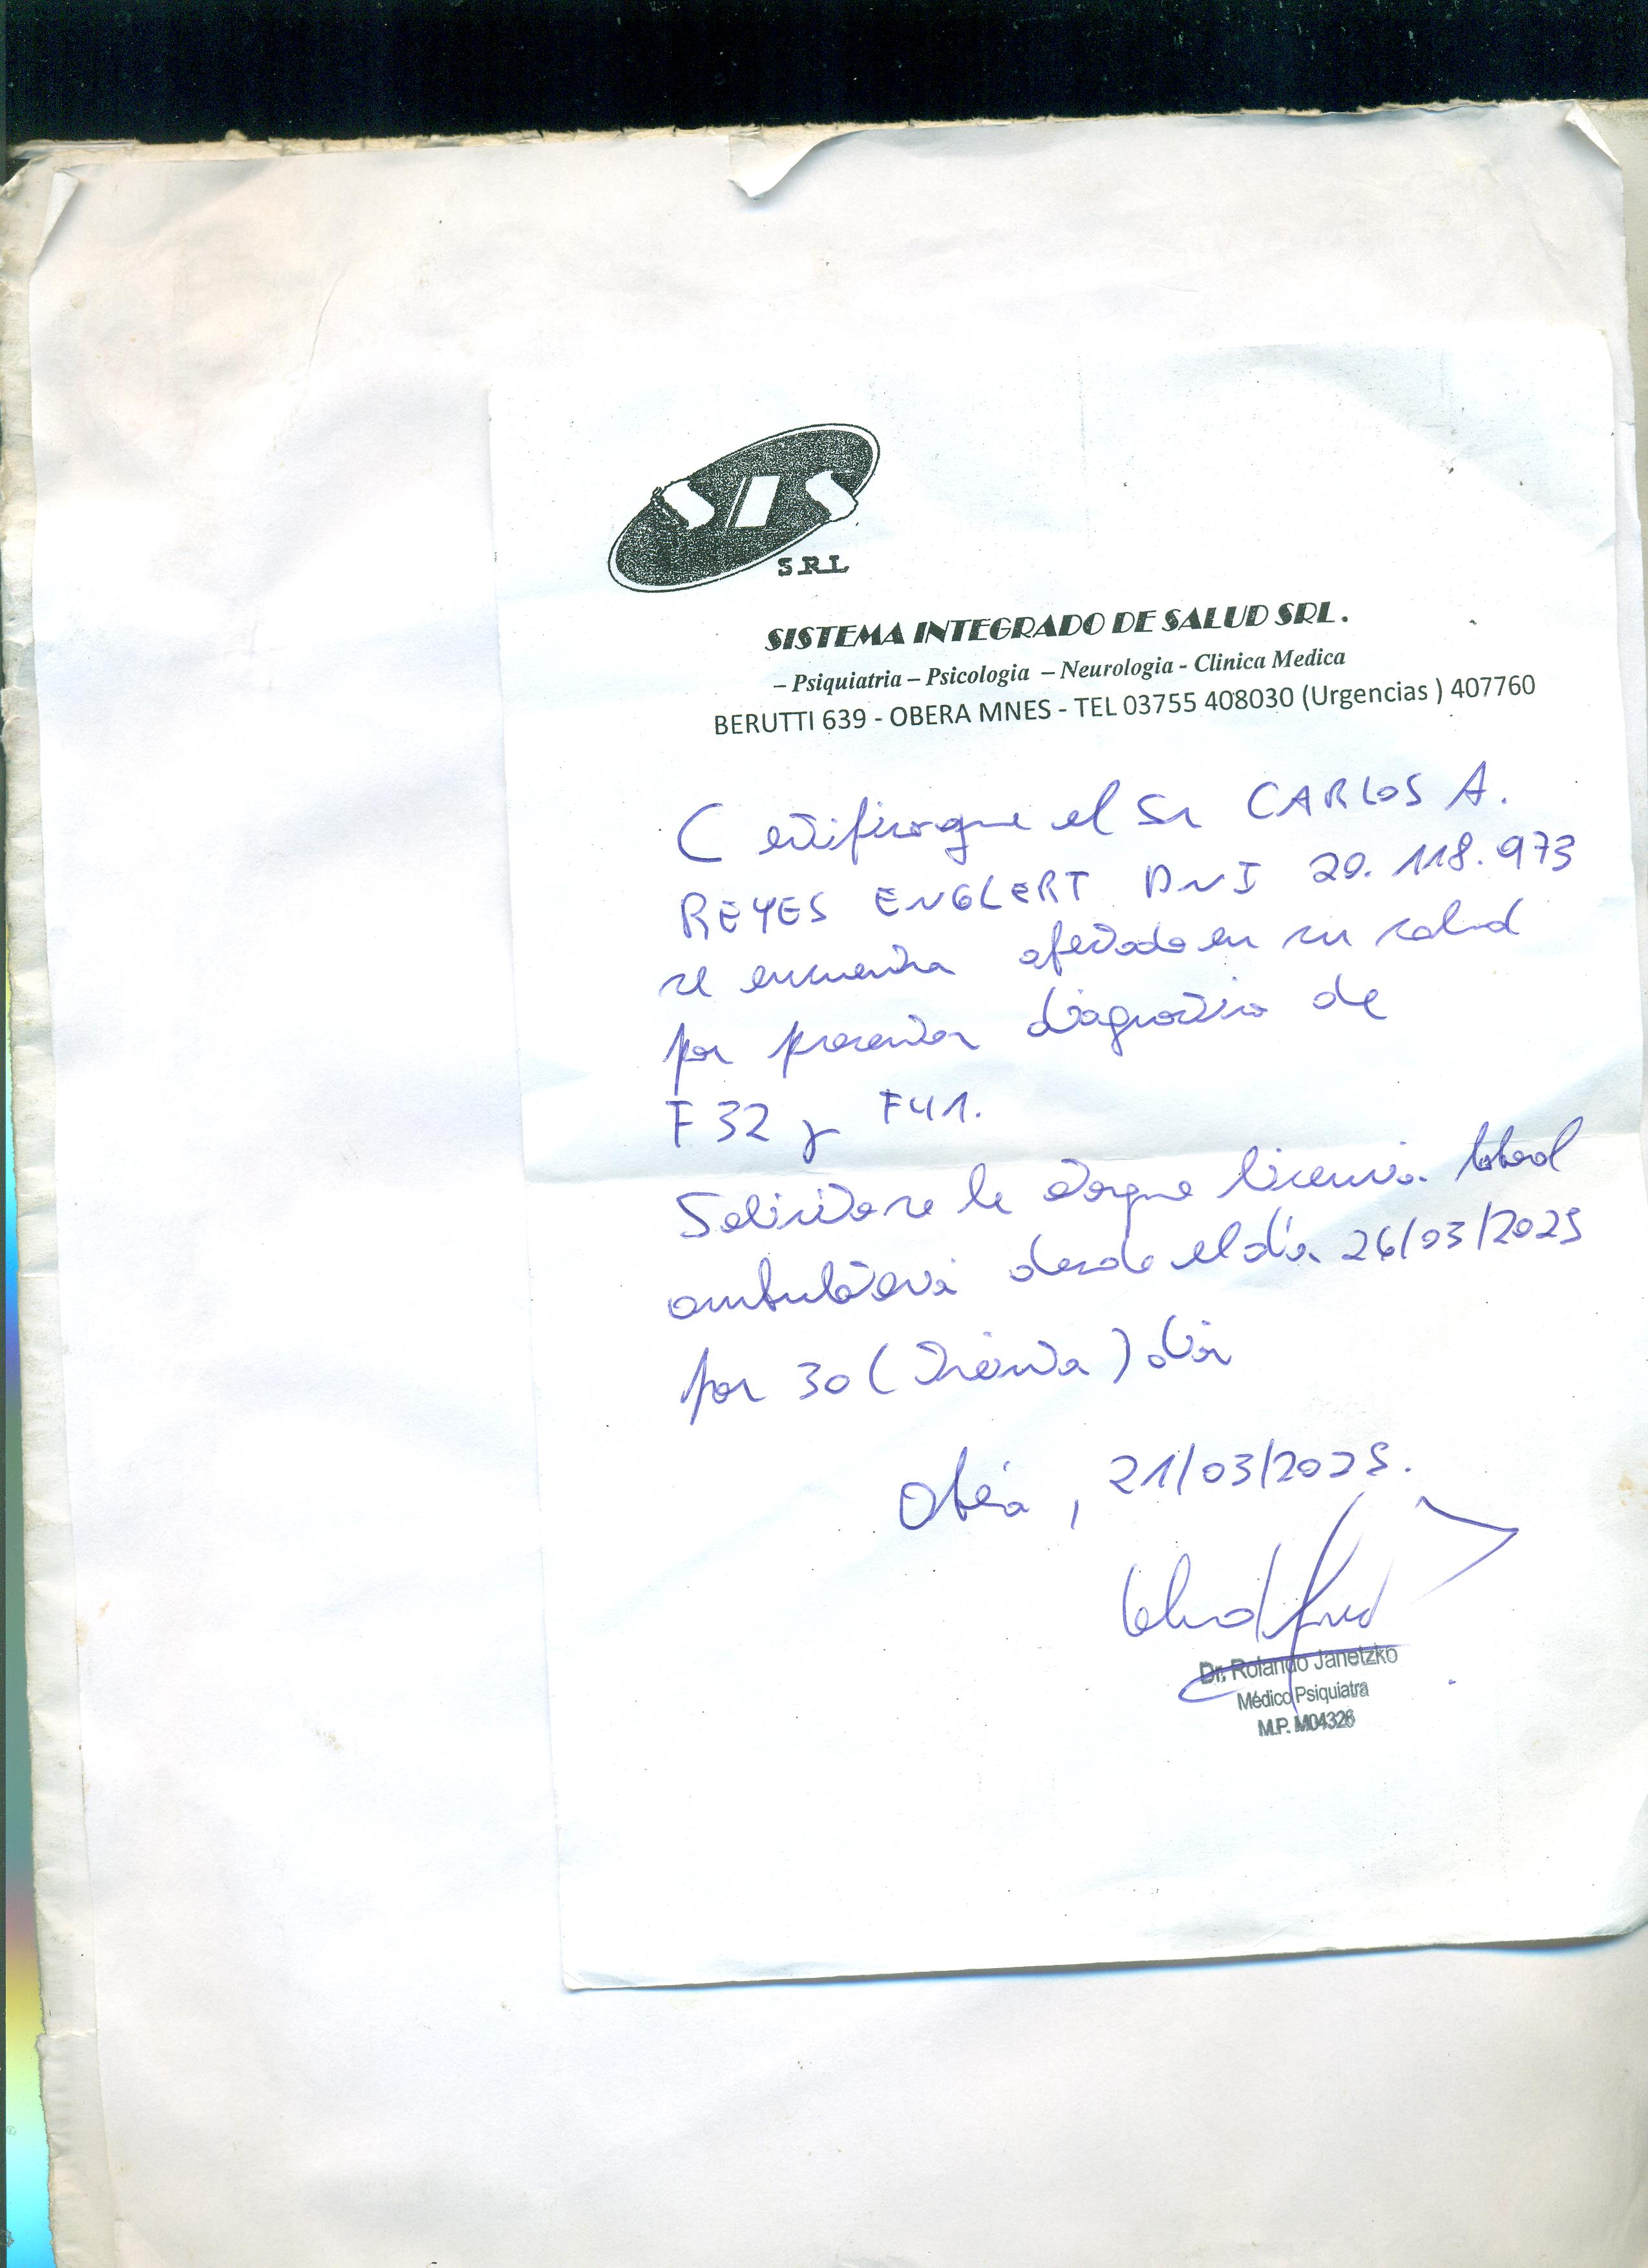 SIS
S.R.L
SISTEMA INTEGRADO DE SALUD SRL.
– Psiquiatria – Psicologia – Neurologia - Clinica Medica
BERUTTI 639 - OBERA MNES - TEL 03755 408030 (Urgencias ) 407760
Certifico que el Sr CARLOS A.
REYES ENGLERT DNI 20.118.973
se encuentra afectado en su salud
por presentar diagnostico de
F32 y F41.
Solicito se le otorgue licencia laboral
ambulatoria desde el día 26/03/2025
por 30 (treinta) días
Oberá, 21/03/2025.
Dr. Rolando Janetzko
Médico Psiquiatra
M.P. M04326